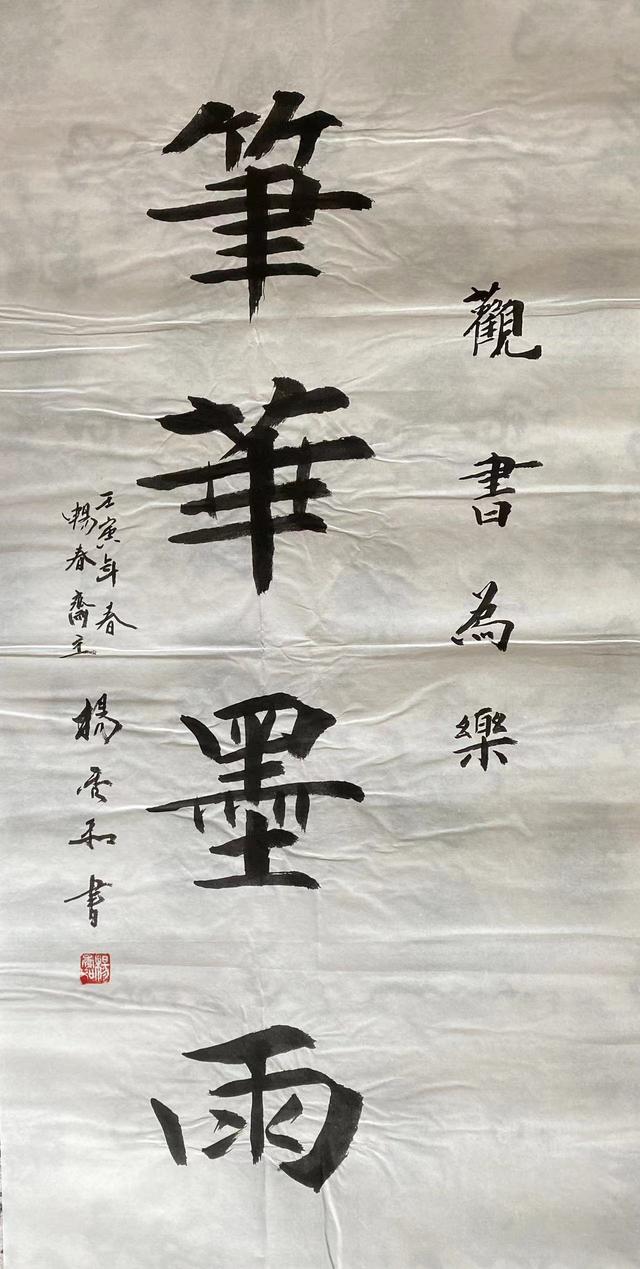 觀書為樂
筆華墨雨
壬寅年春
暢春齋主
楊香和書